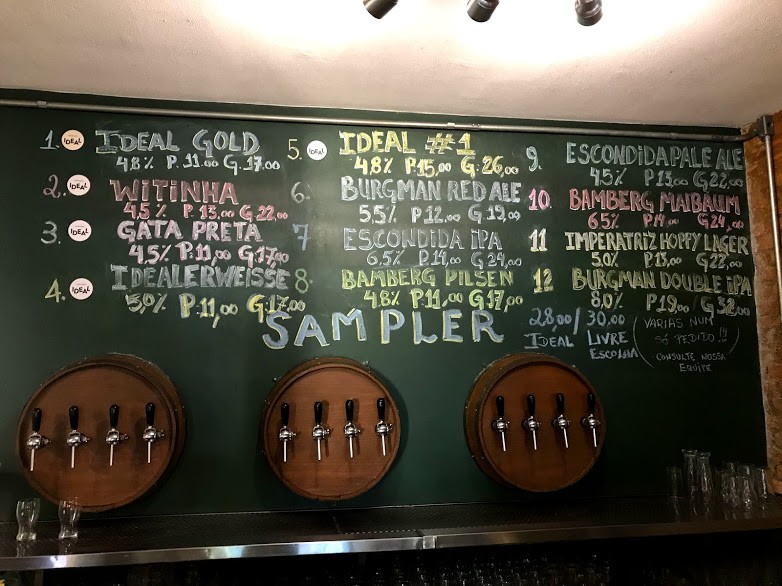 1. IDEAL IDEAL GOLD
4.8% P. 11,00 G. 17,00
2. IDEAL WITINHA
4,5% P. 13,00 G. 22,00
3. IDEAL GATA PRETA
4,5% P. 11,00 G. 17,00
4. IDEAL IDEALERWEISSE
5,0% P. 11,00 G. 17,00
5. IDEAL IDEAL #1
4,8% P. 15,00 G. 26,00
6. BURGMAN RED ALE
5,5% P. 12,00 G. 19,00
7 ESCONDIDA IPA
6,5% P. 14,00 G. 24,00
8. BAMBERG PILSEN
4,8% P. 11,00 G. 17,00
9. ESCONDIDA PALE ALE
4,5% P. 13,00 G. 22,00
10. BAMBERG MAIBAUM
6,5% P. 14,00 G. 24,00
11 IMPERATRIZ HOPPY LAGER
5,0% P. 13,00 G. 22,00
12 BURGMAN DOUBLE IPA
8,0% P. 19,00 / G 32,00
SAMPLER
28,00 / 30,00
IDEAL LIVRE
ESCOLHA
(VARIAS NUM
SÓ PEDIDO!!!
CONSULTE NOSSA
EQUIPE)